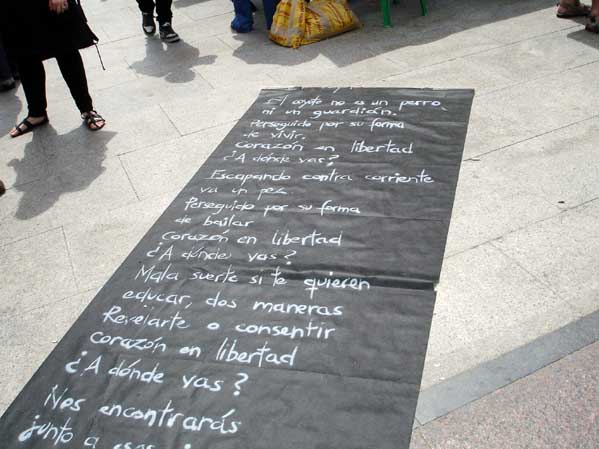 El coyote no es un perro
ni un guardián.
Perseguido por su forma
de vivir.
Corazón en libertad
¿A dónde vas?
Escapando contra corriente
va un pez
Perseguido por su forma
de bailar
Corazón en libertad
¿A dónde vas?
Mala suerte si te quieren
educar, dos maneras
Revelarte o consentir
corazón en libertad
¿A dónde vas?
Nos encontrarás
junto a